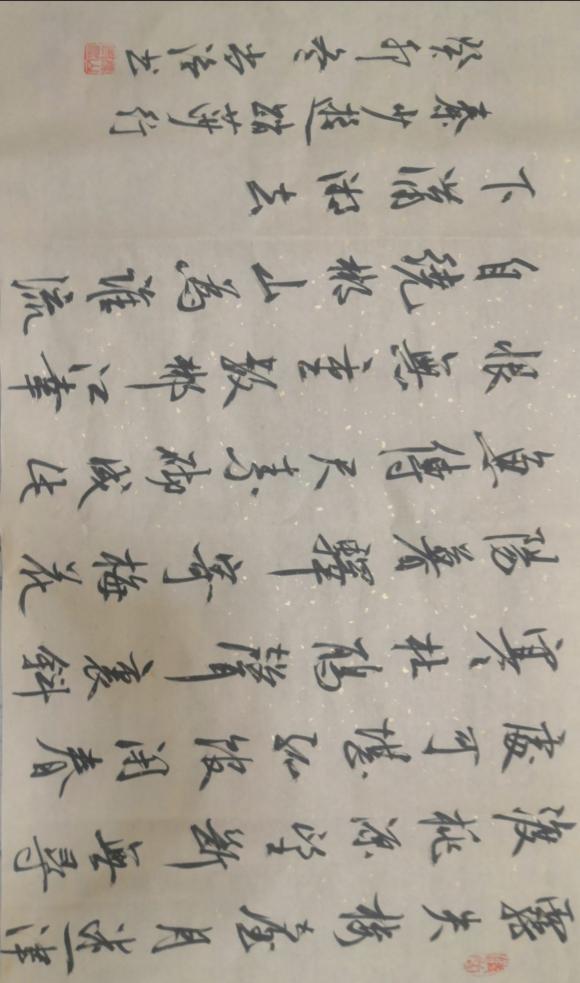 霧失楼臺月迷津
渡桃源望断無尋
處可堪孤馆闭春
寒杜鹃聲裏斜
陽暮驛寄梅花
魚傳尺素砌成此
恨無重数郴江幸
自绕郴山為谁流
下瀟湘去
秦少遊踏莎行
癸卯冬